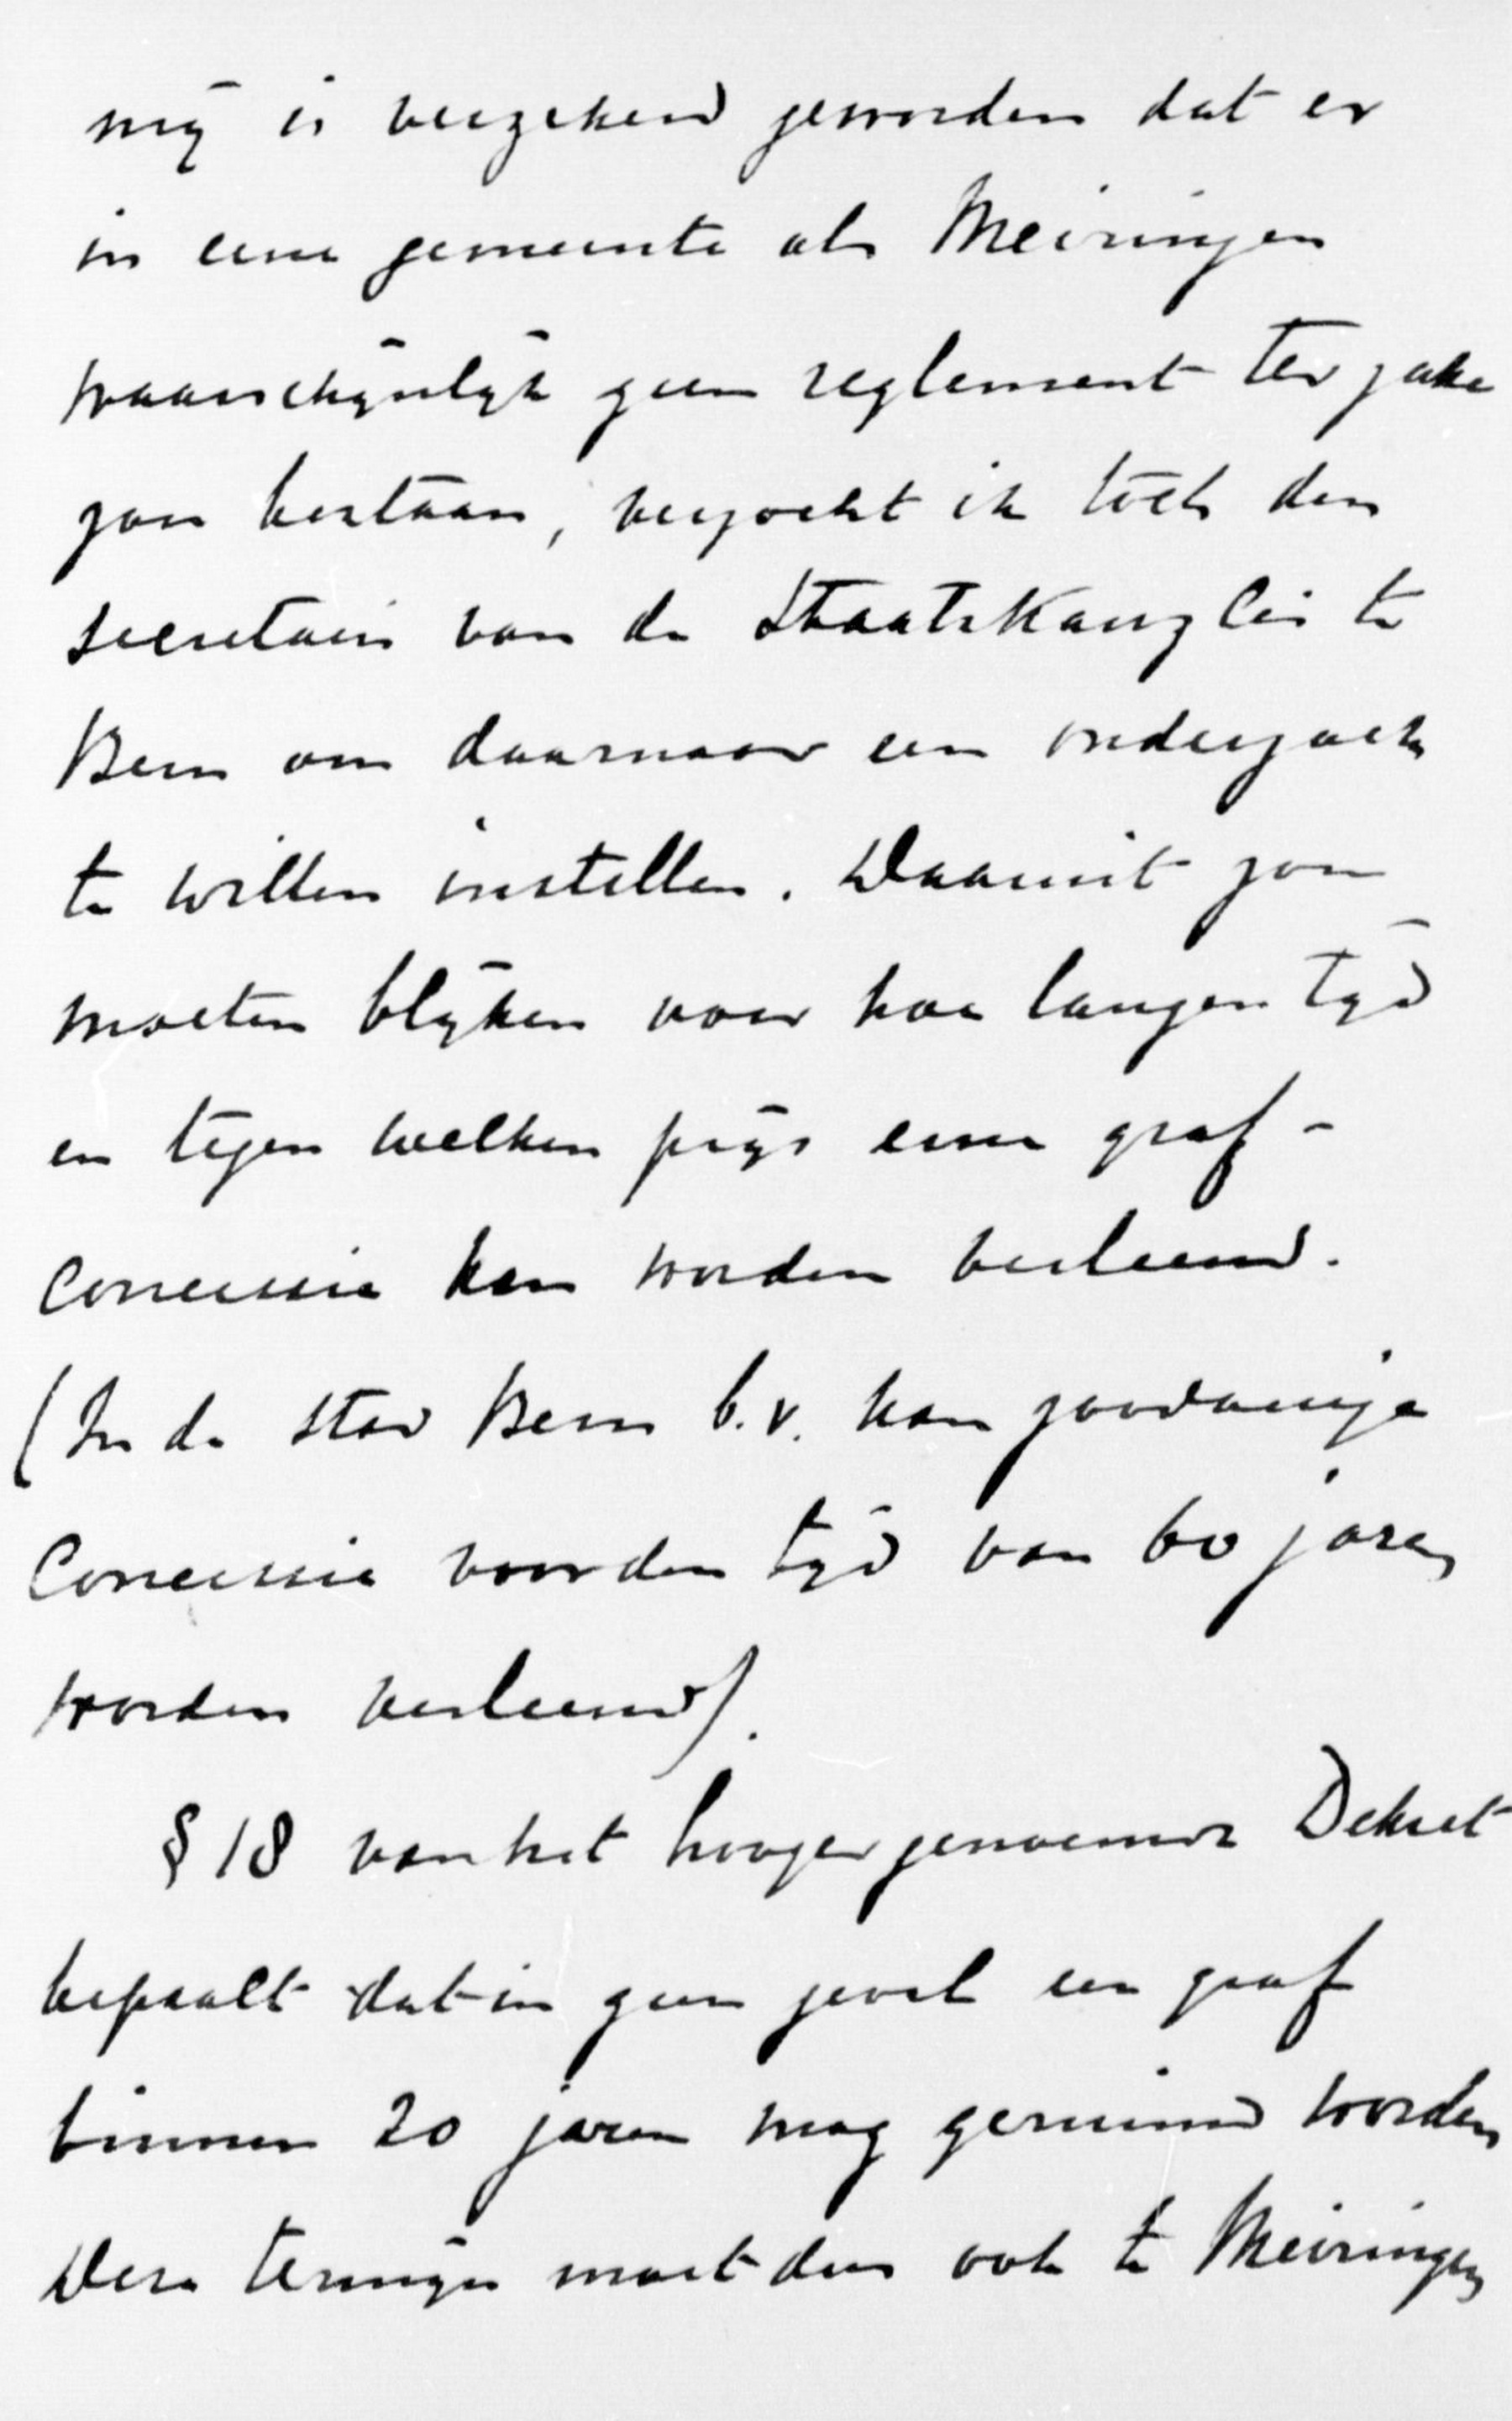 mij is verzekerd geworden dat er
in eene gemeente als Meiringen
waarschijnlijk geen reglement ter zake
zou bestaan, verzocht ik toch den
secretaris van de Staatskanzlei te
Bern om daarnaar een onderzoek
te willen instellen. Daaruit zou
moeten blijken voor hoe langen tijd
en tegen welken prijs eene graf-
concessie kan worden verleend.
(In de stad Bern b.v. kan zoodanige
concessie voor den tijd van 60 jaren
worden verleend).
§ 18 van het hoogergenoemde Dekret
bepaalt dat in geen geval een graf
binnen 20 jaren mag geruimd worden
Deze termijn moet dus ook te Meiringen